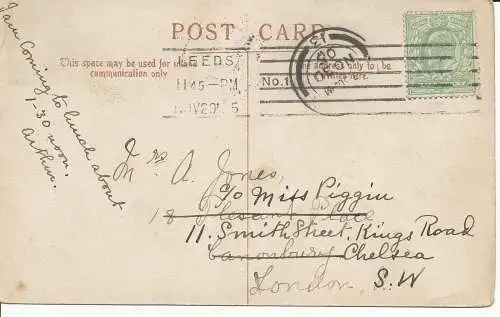 POST CARD
This space may be used for
communication only
The address only to be
here.
LEEDS
11 45 - PM
NOV 29 5
No.1
I am Coming to lunch about
1-30 noon,
Arthur.
Mrs A. Jones,
C/o Miss Piggin
18 Plesant Place
11. Smith Street, Kings Road
Canonbury Chelsea
London. S.W